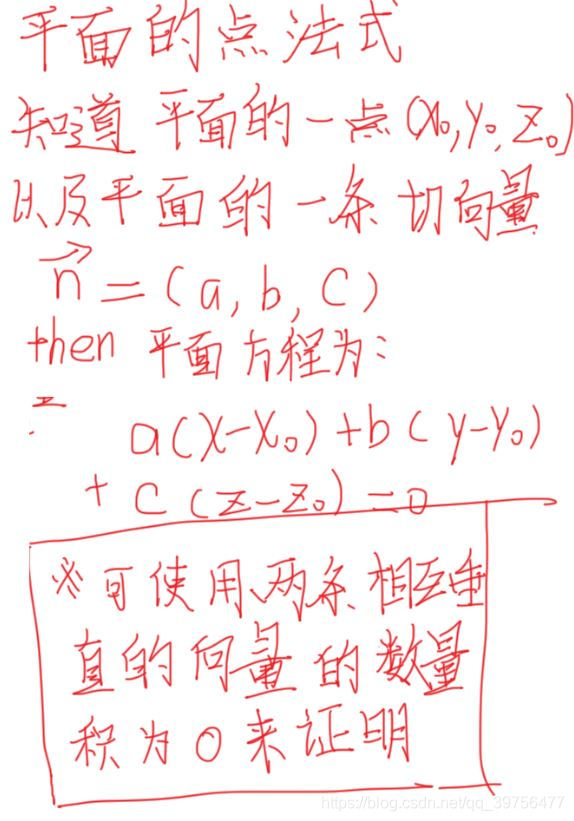 平面的点法式
知道平面的一点(x₀,y₀,z₀)
以及平面的一条切向量
n⃗=(a,b,c)
then 平面方程为:
a(x-x₀)+b(y-y₀)
+c(z-z₀)=0
※可使用两条相互垂
直的向量的数量
积为0来证明
https://blog.csdn.net/qq_39756477